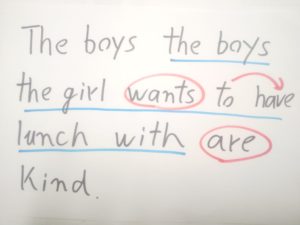 The boys the boys
the girl wants to have
lunch with are
Kind.